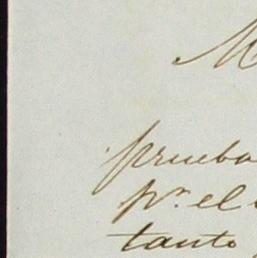 M
prueba
pr. el
tanto